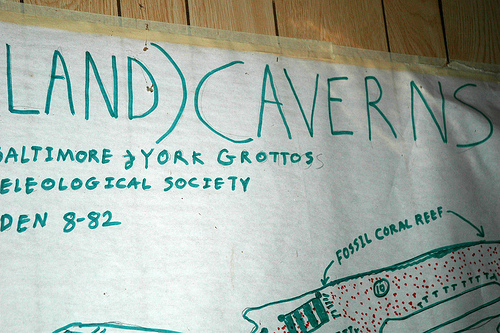 LAND) CAVERNS
BALTIMORE & YORK GROTTOS
ELEOLOGICAL SOCIETY
DEN 8-82
FOSSIL CORAL REEF
10